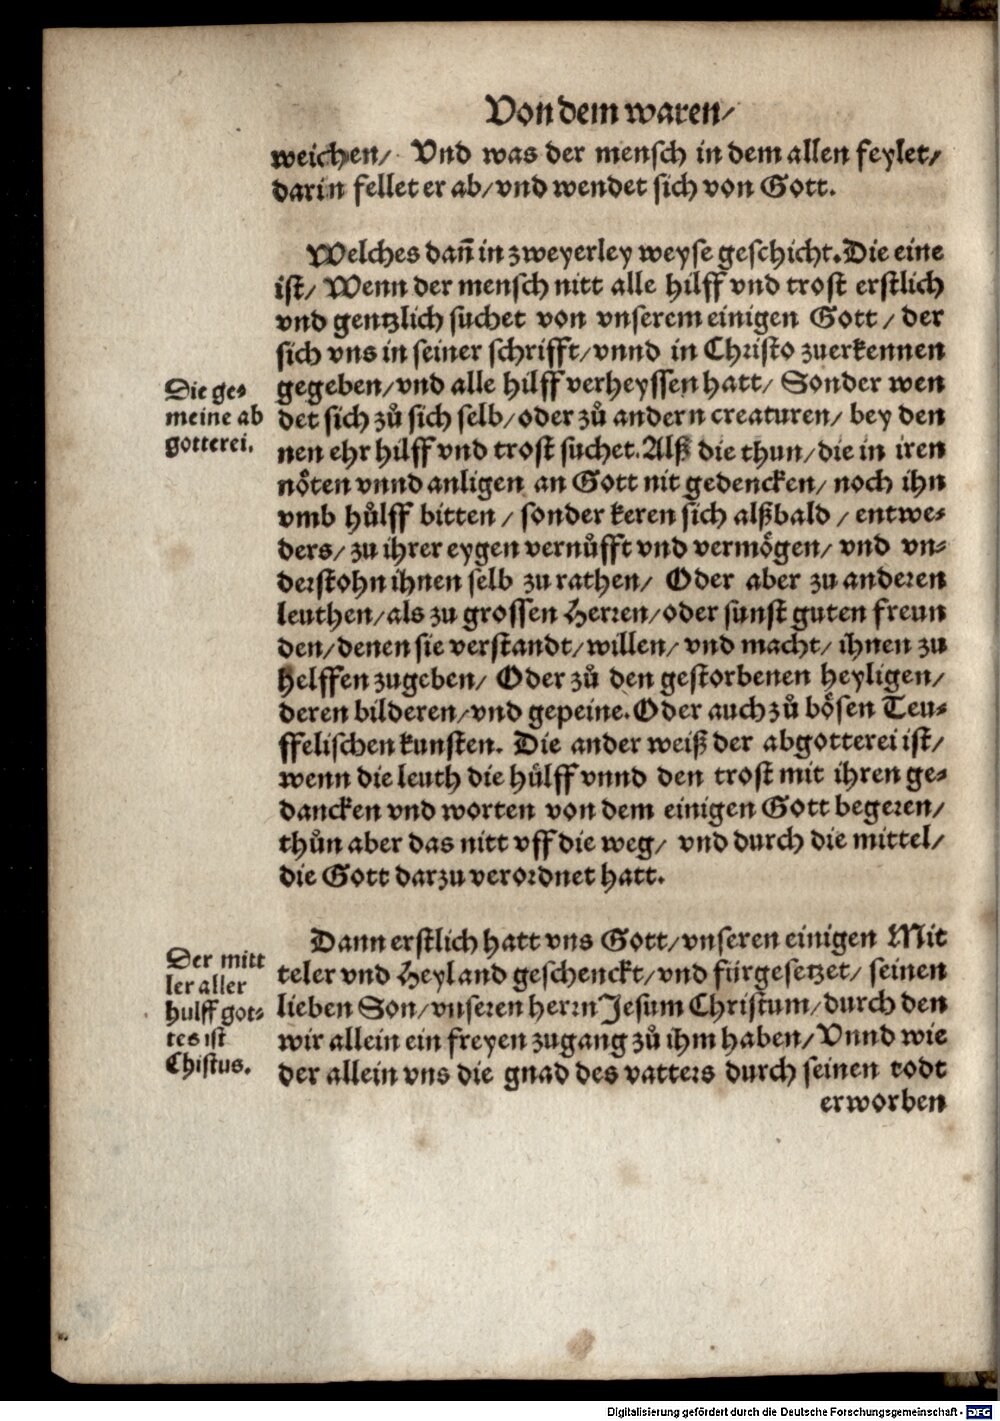 Von dem waren/
weichen/ Vnd was der mensch in dem allen feylet/
darin fellet er ab/vnd wendet sich von Gott.
Welches dañ in zweyerley weyse geschicht. Die eine
ist/ Wenn der mensch nitt alle hilff vnd trost erstlich
vnd gentzlich suchet von vnserem einigen Gott/ der
sich vns in seiner schrifft/vnnd in Christo zuerkennen
gegeben/vnd alle hilff verheyssen hatt/ Sonder wen
det sich zů sich selb/oder zů andern creaturen/ bey den
nen ehr hilff vnd trost suchet. Alß die thun/die in iren
nöten vnnd anligen an Gott nit gedencken/ noch ihn
vmb hůlff bitten/ sonder keren sich alßbald/ entwe-
ders/ zu ihrer eygen vernůfft vnd vermögen/ vnd vn-
derstohn ihnen selb zu rathen/ Oder aber zu anderen
leuthen/als zu grossen Herren/oder sunst guten freun
den/denen sie verstandt/willen/ vnd macht/ ihnen zu
helffen zugeben/ Oder zů den gestorbenen heyligen/
deren bilderen/vnd gepeine. Oder auch zů bösen Teu-
ffelischen kunsten. Die ander weiß der abgotterei ist/
wenn die leuth die hůlff vnnd den trost mit ihren ge-
dancken vnd worten von dem einigen Gott begeren/
thůn aber das nitt vff die weg/ vnd durch die mittel/
die Gott darzu verordnet hatt.
Die ge-
meine ab
gotterei.
Dann erstlich hatt vns Gott/vnseren einigen Mit
teler vnd Heyland geschenckt/vnd fürgesetzet/ seinen
lieben Son/vnseren herrn Jesum Christum/durch den
wir allein ein freyen zugang zů ihm haben/ Vnnd wie
der allein vns die gnad des vatters durch seinen todt
erworben
Der mitt
ler aller
hulff got-
tes ist
Chistus.
Digitalisierung gefördert durch die Deutsche Forschungsgemeinschaft - DFG